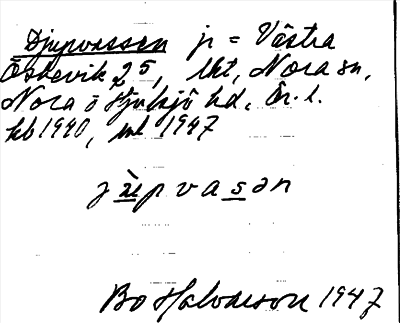 Djupvassen jr = Västra
Öskevik 2 5, lht, Nora sn,
Nora o Hjulsjö hd, Ör. l.
kb 1940, ml 1947
jùpvasən
Bo Halvarson 1947